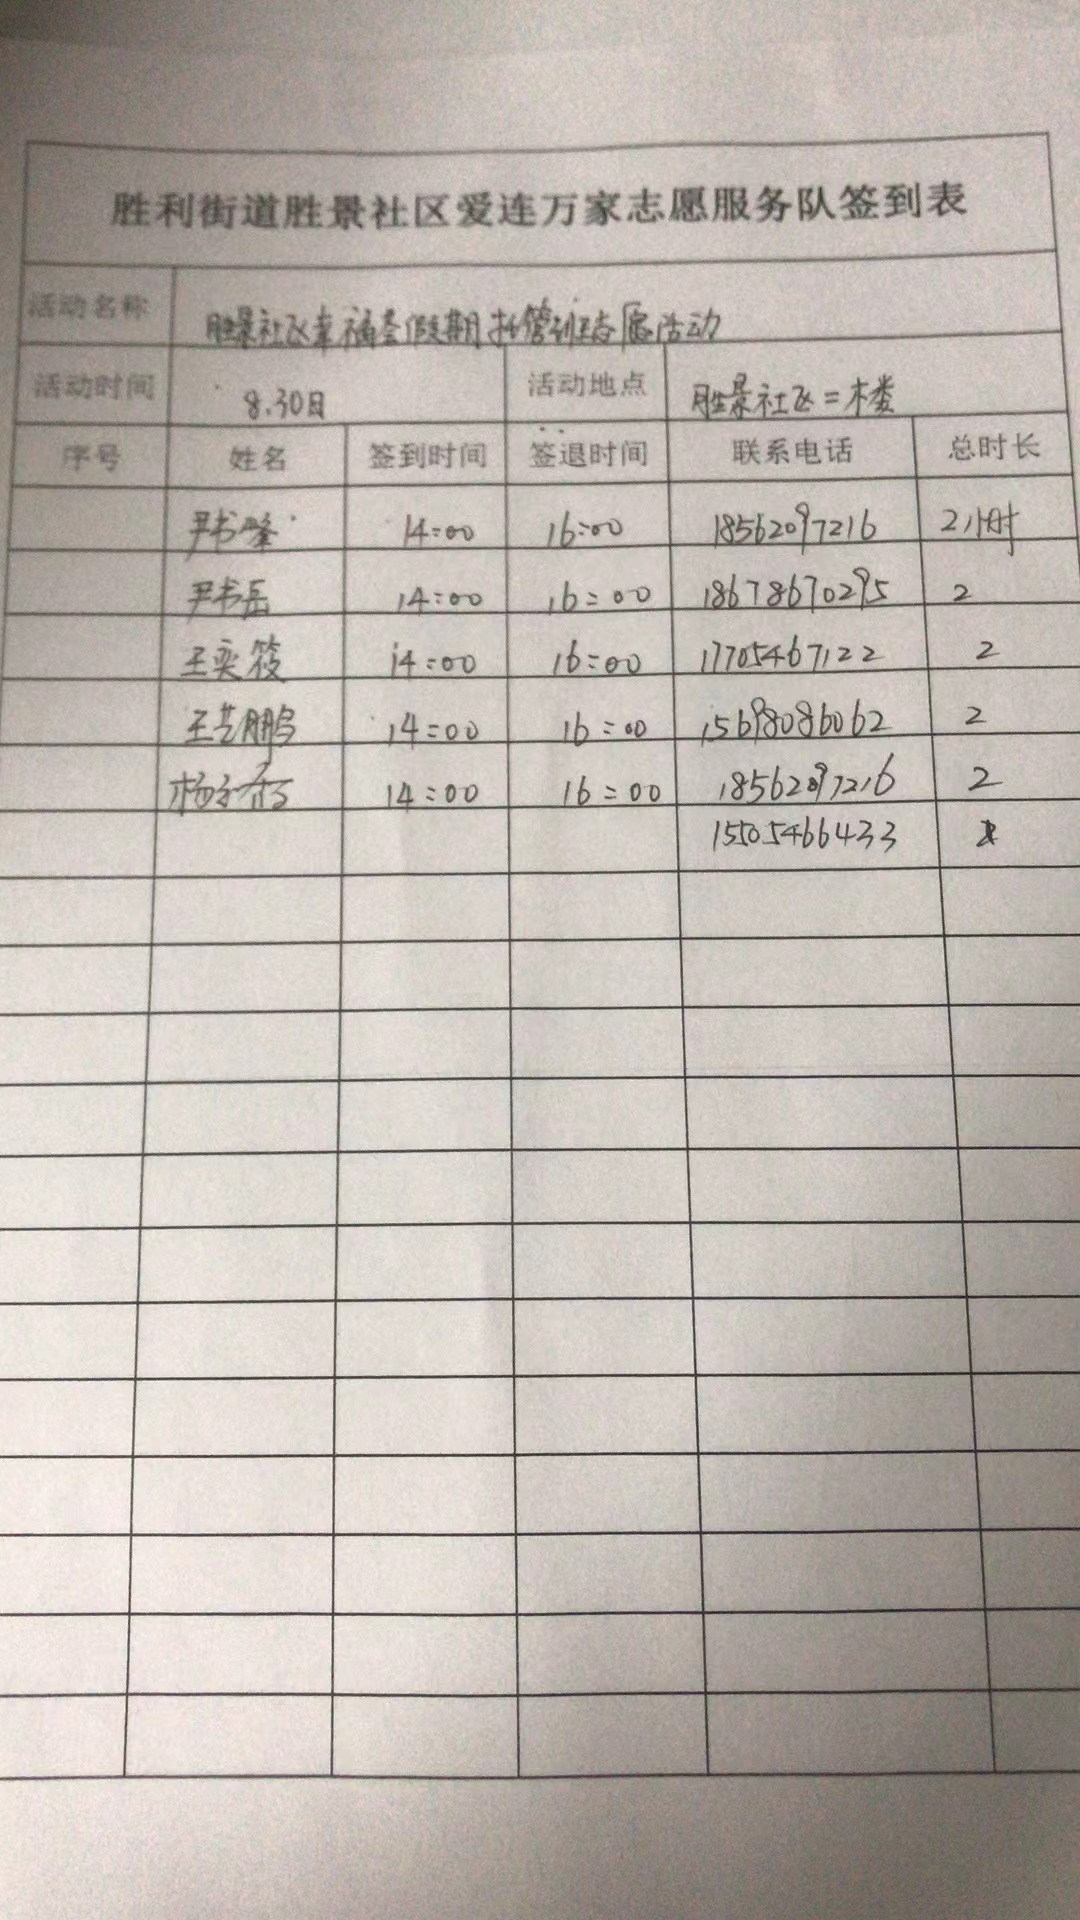 胜利街道胜景社区爱连万家志愿服务队签到表
活动名称 胜景社区幸福荟假期托管班志愿活动
活动时间 8.30日 活动地点 胜景社区二楼
序号 姓名 签到时间 签退时间 联系电话 总时长
尹书峰 14:00 16:00 18562097216 2小时
尹书岳 14:00 16:00 18678670295 2
王奕筱 14:00 16:00 17705467122 2
王艺鹏 14:00 16:00 15698086062 2
杨 14:00 16:00 18562097216 2
15505466433